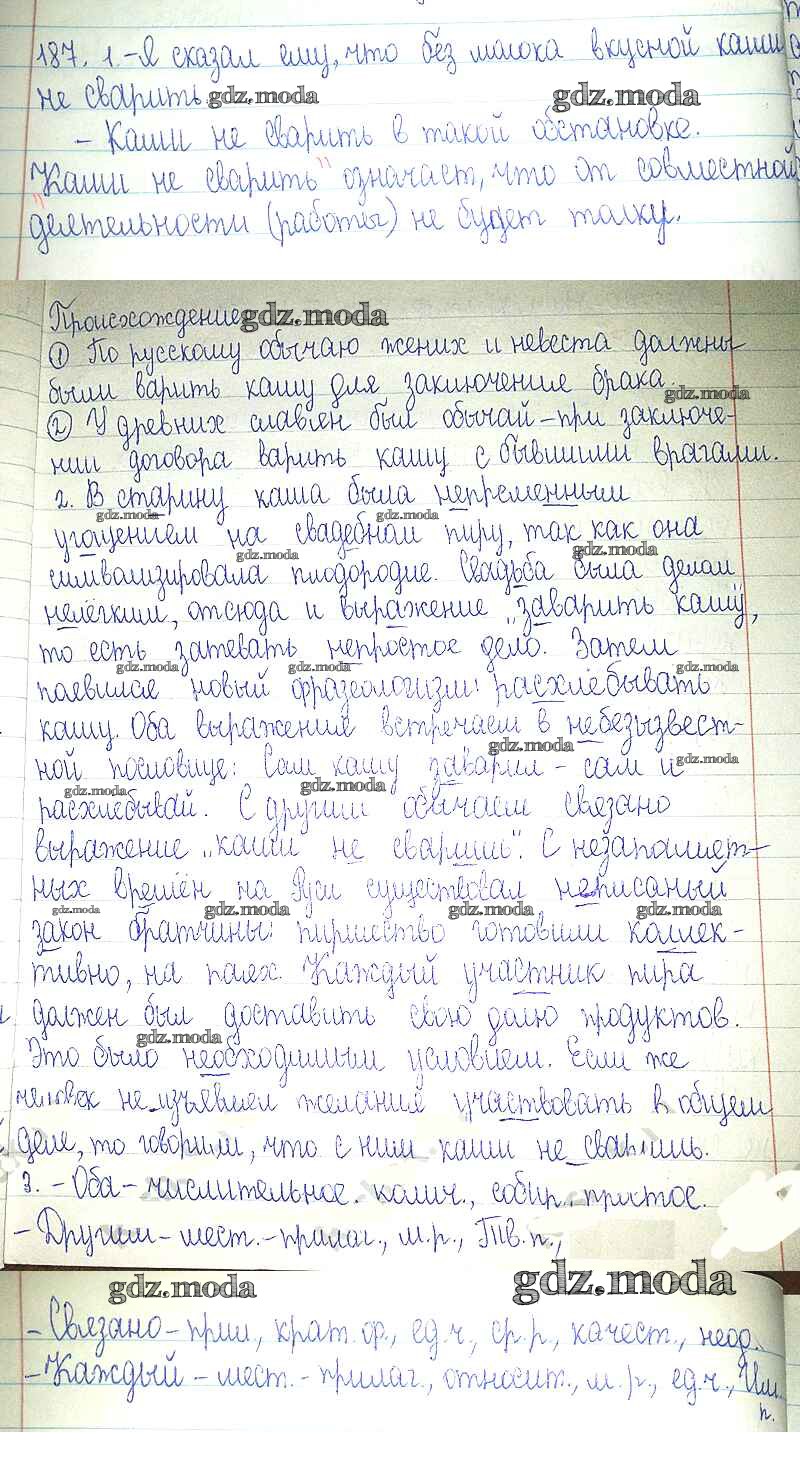 187. 1. -Я сказал ему, что без молока вкусной каши
не сварить. gdz.moda gdz.moda
- Каши не сварить в такой обстановке.
"Каши не сварить" означает, что от совместной
деятельности (работы) не будет толку.
Происхождение gdz.moda
① По русскому обычаю жених и невеста должны
были варить кашу для заключения брака.
gdz.moda
② У древних славян был обычай - при заключе-
нии договора варить кашу с бывшими врагами.
2. В старину каша была непременным
gdz.moda gdz.moda
угощением на свадебном пиру, так как она
gdz.moda gdz.moda
символизировала плодородие. Свадьба была делом
нелёгким, отсюда и выражение „заварить кашу",
то есть затевать непростое дело. Затем
gdz.moda gdz.moda gdz.moda
появился новый фразеологизм: расхлёбывать
кашу. Оба выражения встречаем в небезызвест-
gdz.moda
ной пословице: Сам кашу заварил - сам и
gdz.moda gdz.moda gdz.moda
расхлебывай. С другим обычаем связано
выражение „каши не сваришь". С незапамят-
ных времён на Руси существовал неписаный
gdz.moda gdz.moda gdz.moda gdz.moda
закон братчины: пиршество готовили коллек-
тивно, на паях. Каждый участник пира
должен был доставить свою долю продуктов.
gdz.moda
Это было необходимым условием. Если же
человек не изъявлял желания участвовать в общем
деле, то говорили, что с ним каши не сваришь.
3. - Оба - числительное. колич., собир. простое.
- Другим - мест. - прилаг., м.р., Тв.п.,
gdz.moda gdz.moda
- Связано - прич., крат. ф., ед.ч., ср.р., качест., неод.
- Каждый - мест. - прилаг., относит., м.р., ед.ч., Им.
п.